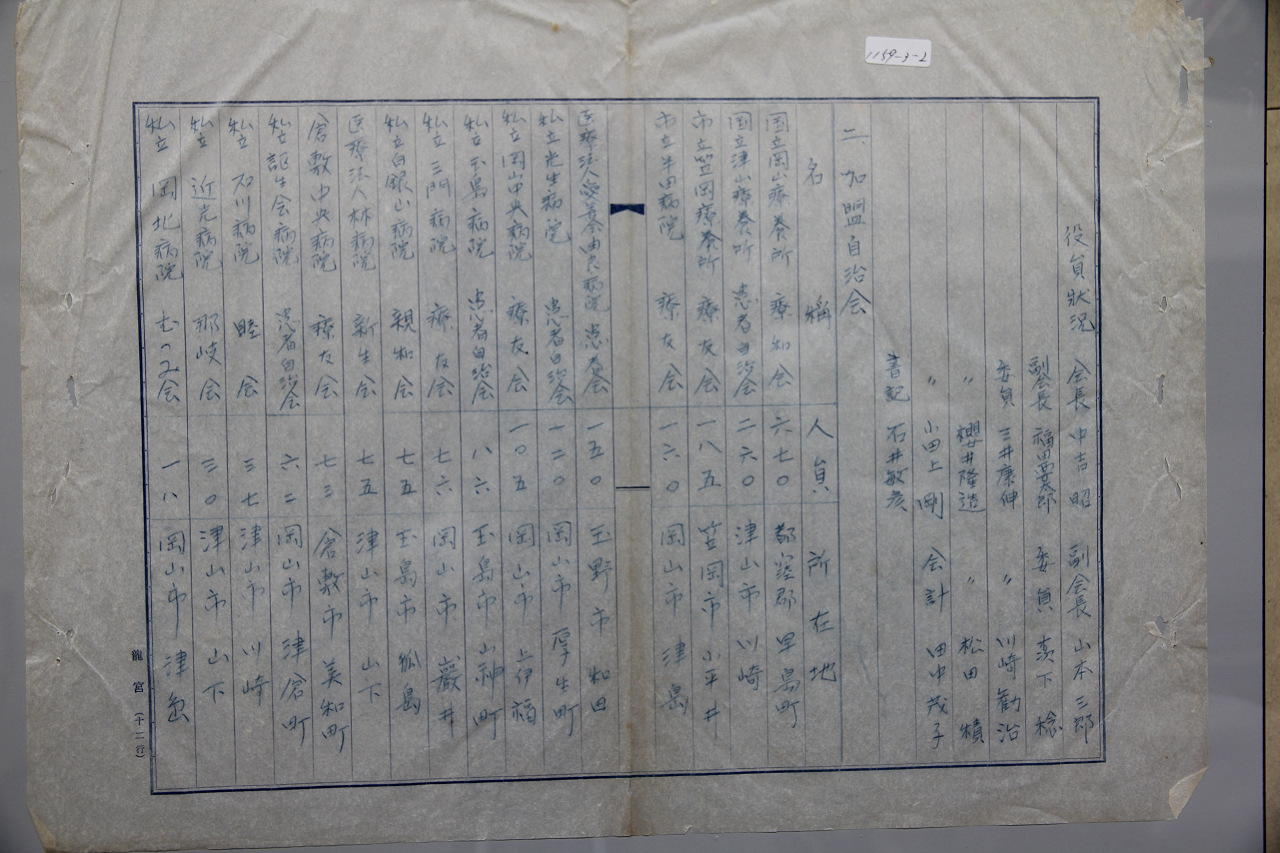 1159-3-2
役員状況 会長 中吉昭 副会長 山本三郎
副会長 福田要太郎 委員 下 稔
委員 三井康伸 〃 川崎勸治
〃 櫻井隆造 〃 松田 積
〃 小田上剛 会計 田中茂子
書記 石井敏彦
二、加盟自治会
名称 人員 所在地
国立岡山療養所 療知会 六七〇 都窪郡早島町
国立津山療養所 患者自治会 二六〇 津山市川崎
市立笠岡療養所 療友会 一八五 笠岡市小平井
市立半田病院 療友会 一六〇 岡山市津島
医療法人 由良病院 患者会 一五〇 玉野市和田
私立光生病院 患者自治会 一二〇 岡山市厚生町
私立岡山中央病院 療友会 一〇五 岡山市上伊福
私立玉島病院 患者自治会 八六 玉島市山神町
私立三門病院 療友会 七六 岡山市巌井
私立白銀山病院 親和会 七五 玉島市狐島
医療法人林病院 新生会 七五 津山市山下
倉敷中央病院 療友会 七三 倉敷市美和町
私立記生会病院 患者自治会 六二 岡山市津倉町
私立石川病院 睦会 三七 津山市川崎
私立近光病院 那岐会 三〇 津山市山下
私立岡北病院 むつみ会 一八 岡山市津島
龍宮(十二行)